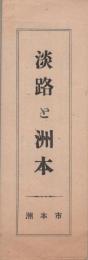 淡路と洲本
洲本市